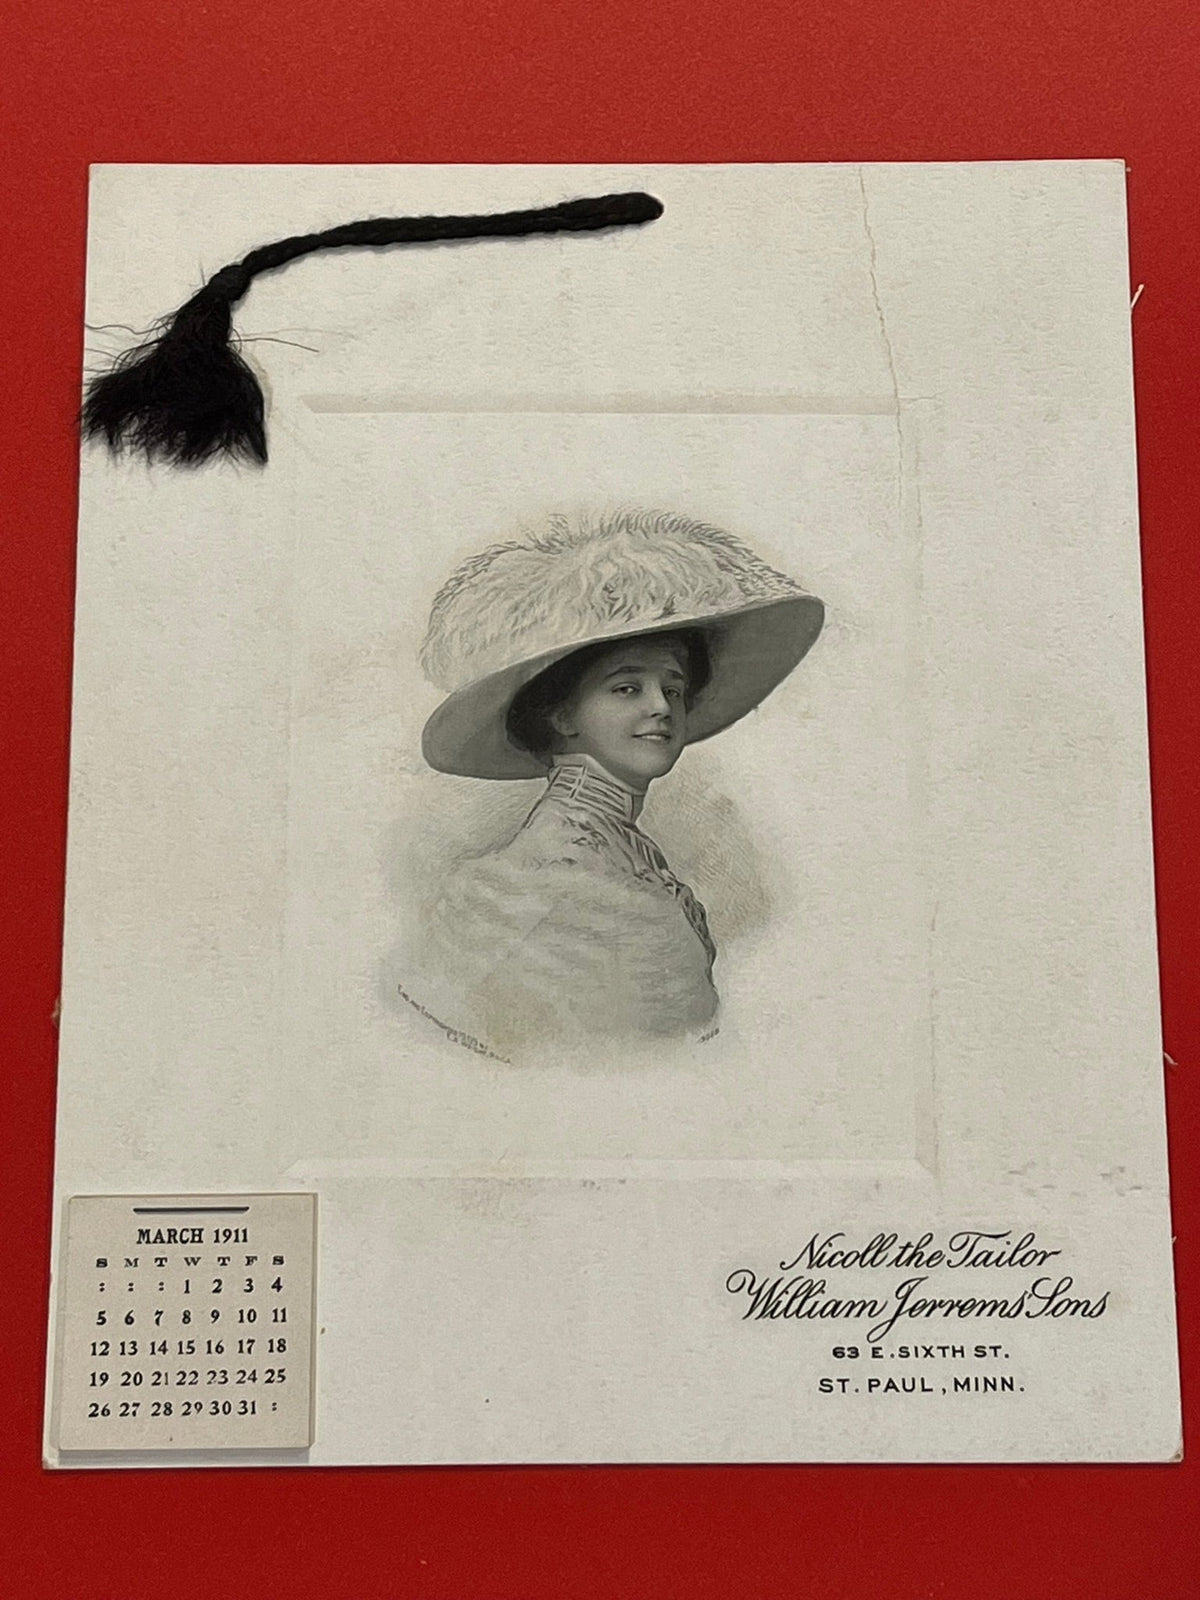 ENG. AND COPYRIGHTED 1909 BY
3008
MARCH 1911
S M T W T F S
: : : 1 2 3 4
5 6 7 8 9 10 11
12 13 14 15 16 17 18
19 20 21 22 23 24 25
26 27 28 29 30 31 :
Nicoll the Tailor
William Jerrems' Sons
63 E. SIXTH ST.
ST. PAUL, MINN.